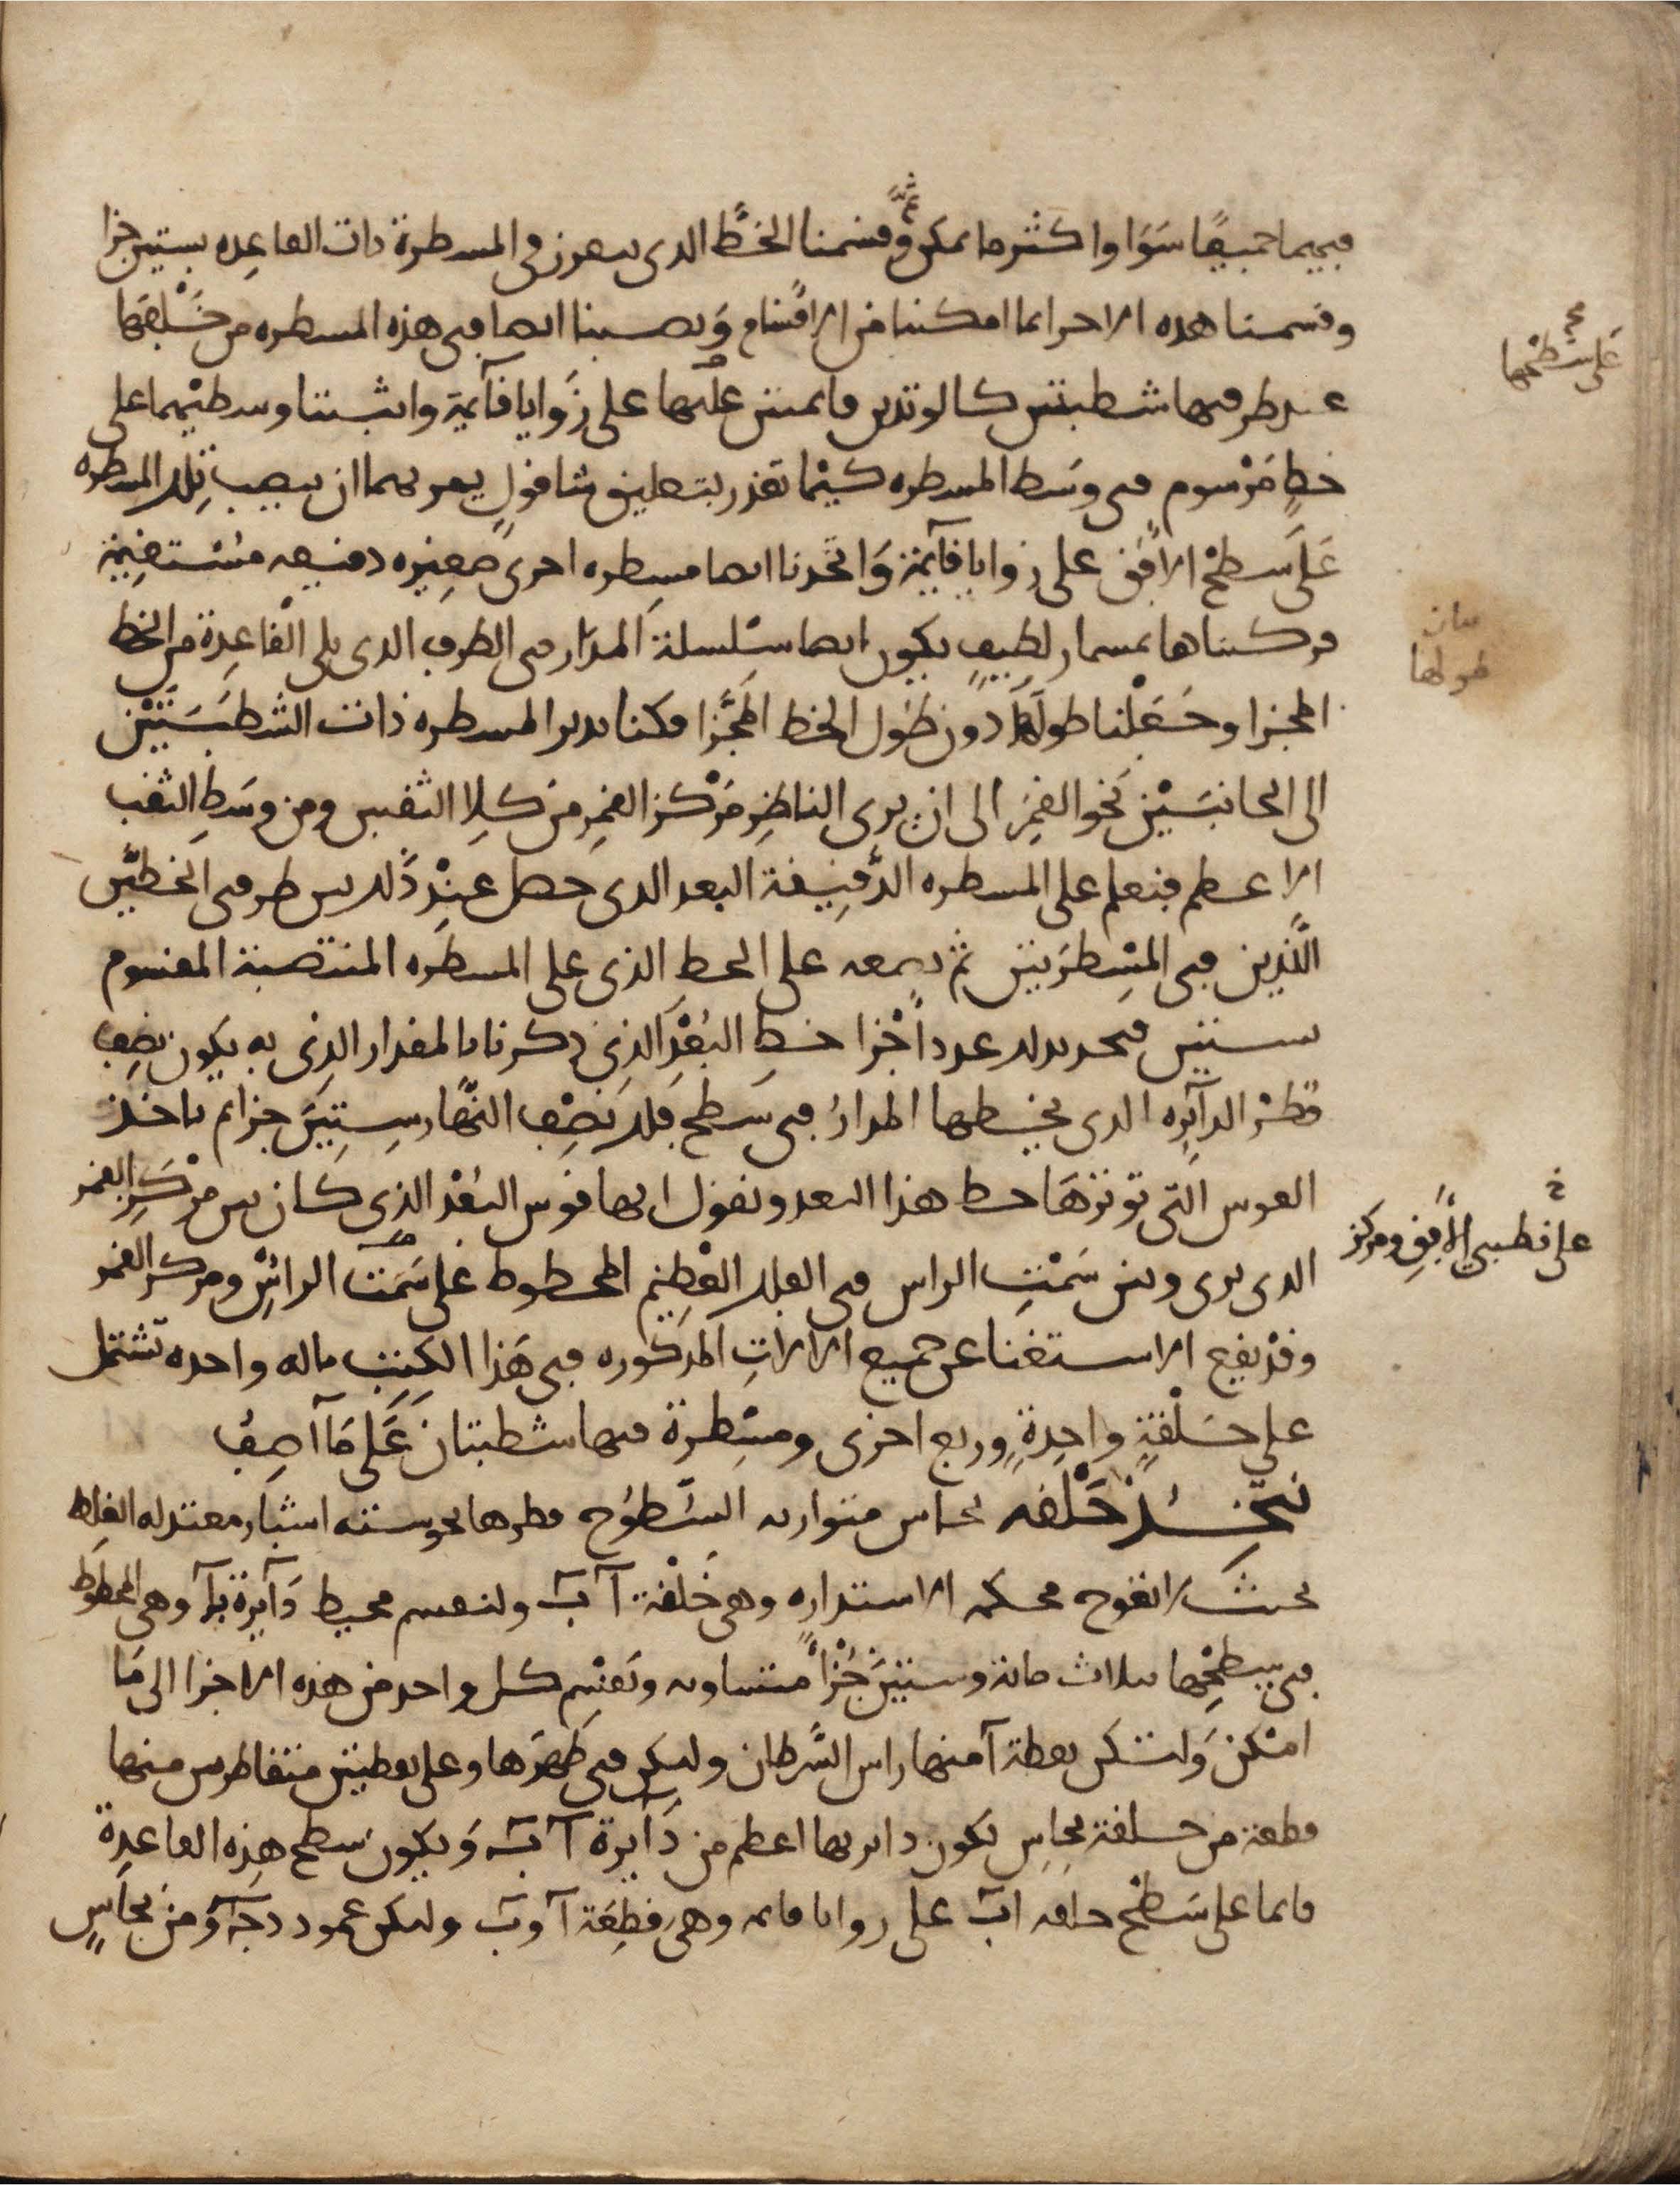 فيهما جميعا سَوَا واكثر ما يمكن ثم وقسمنا الخطَّ الذى يبعد فى المسطرة ذات القاعِده بستين جزا
وقسمنا هذه الاجزا بما امكننا من الاقسام وَنصبنا ايضا فى هذه المسطره من خَلْفها
على سَطْحها
عند طرفيها شطبتين كالوتدين قائمتين عليها على زَوايا قآيمة واثبتنا وسطيْهما على
خطٍ مَرْسوم فى وسَط المسطره كيْما نقدر بتعليق شاقولٍ يمر بهما ان ننصب تِلك المسطره
عَلَى سطْح الاُفق على زوايا قآيمة وَاتخذنا ايضا مسِطره اخرى صغِيره دقيقه مُسْتقِيمة
وركبناها بمسمار لطِيفٍ يكون ايضا سَلِسلة المَدَار فى الطرف الذى يلى القاعِدة من الخط
بيان
طولها
المجزا وجَعَلْنا طولَها دون طُول الخط المُجَزا فكنا ندير المسطره ذات الشطبَتَيْن
الى الجانبَيْن نَحو القمَر الى ان يرى الناظِر مَرْكز القمَر من كِلا الثقبين ومن وسَطِ الثقب
الاعظم فنعلم على المسطره الدَّقِيقة البعد الذى حصل عِنْد ذَلك بين طرفى الخطيَّن
اللَّذين فى المسْطرَتين ثم نضعه على الخط الذى على المسطره المنتصبة المقسوم
بستين فنجد بذلك عدد اجْزا خطِ البُعْدِ الذِى ذكرنا بالمقدار الذِى به يكون نِصْف
قطْر الدآئِره الذى يخطها المدارُ فى سَطح فلك نصِْف النهار سِتِينَ جزا ثم ناخذ
القوس التى توترهَا خط هذا البعد ونقول انها قوس البُعْد الذِى كان بين مرْكَز القمر
الذى يرى وبين سَمْتِ الراس فى الفلك العَظِيم المخطوط على سَمْت الراسْ ومركز القمر
على قطبي الأفق ومركز
وقدْ يقع الاستغنا عن جميع الالاتِ المذكوره فى هَذا الكِتٰب بآله واحده تشتمل
على حَلْقةٍ واحِدةٍ وربع اخرى ومسْطِرة فيها شطبتان عَلَى مَا آصِفُ
نتخِذُ حَلْقه نحاس متوازيه السُّطوُح قطرها نحو سته اشبار معتدله الغلظ
بحيث لا تعوج محكمه الاستداره وهى حَلْقة آ بَ ولنقسم محيط دَآيِرة بآ وهى المخطوط
فى سِطحِها بثلاث مائة وستينَ جُزْاً متساويه ونَقْسِم كل واحد من هذه الاجزا الى مَا
امْكنَ وَلتكن نقطة آ منها راس السَّرطان وليكن فى ظهْرها وعلى نقطتين متقاطرتين منها
قطعة من حلقة نحاسٍ تكون دائرتها اعظم من دَآيرة آ بَ وَيكون سَطح هِذه القاعدِة
قائما على سَطْح حلقه ابَ على زوايا قائمه وهى قِطعَة آ وبَ وليكن عمود دجَه وَ من نحاسٍ